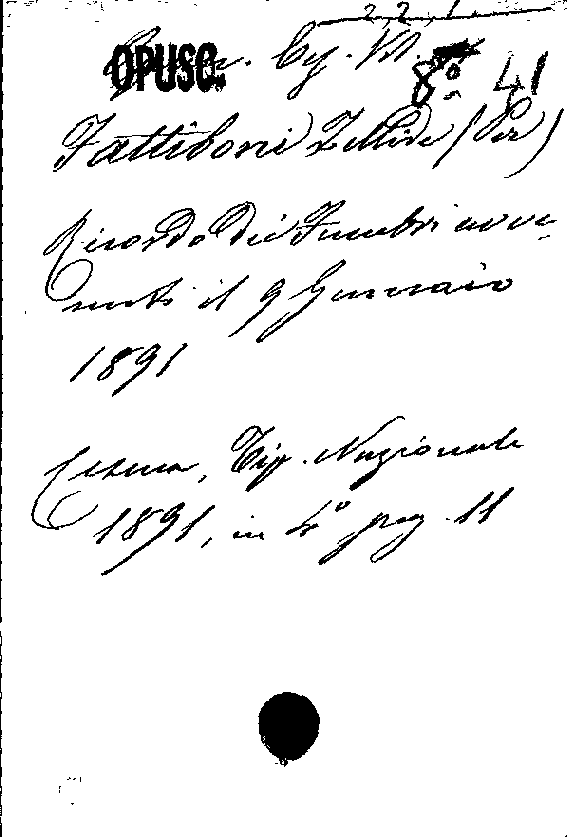 221
OPUSC. 8° 41
Fattiboni Zellide (Per)
Ricordo dei Funebri avve-
nuti il 9 Gennaio
1891
Cesena, Tip. Nazionale
1891, in 4° pag. 11